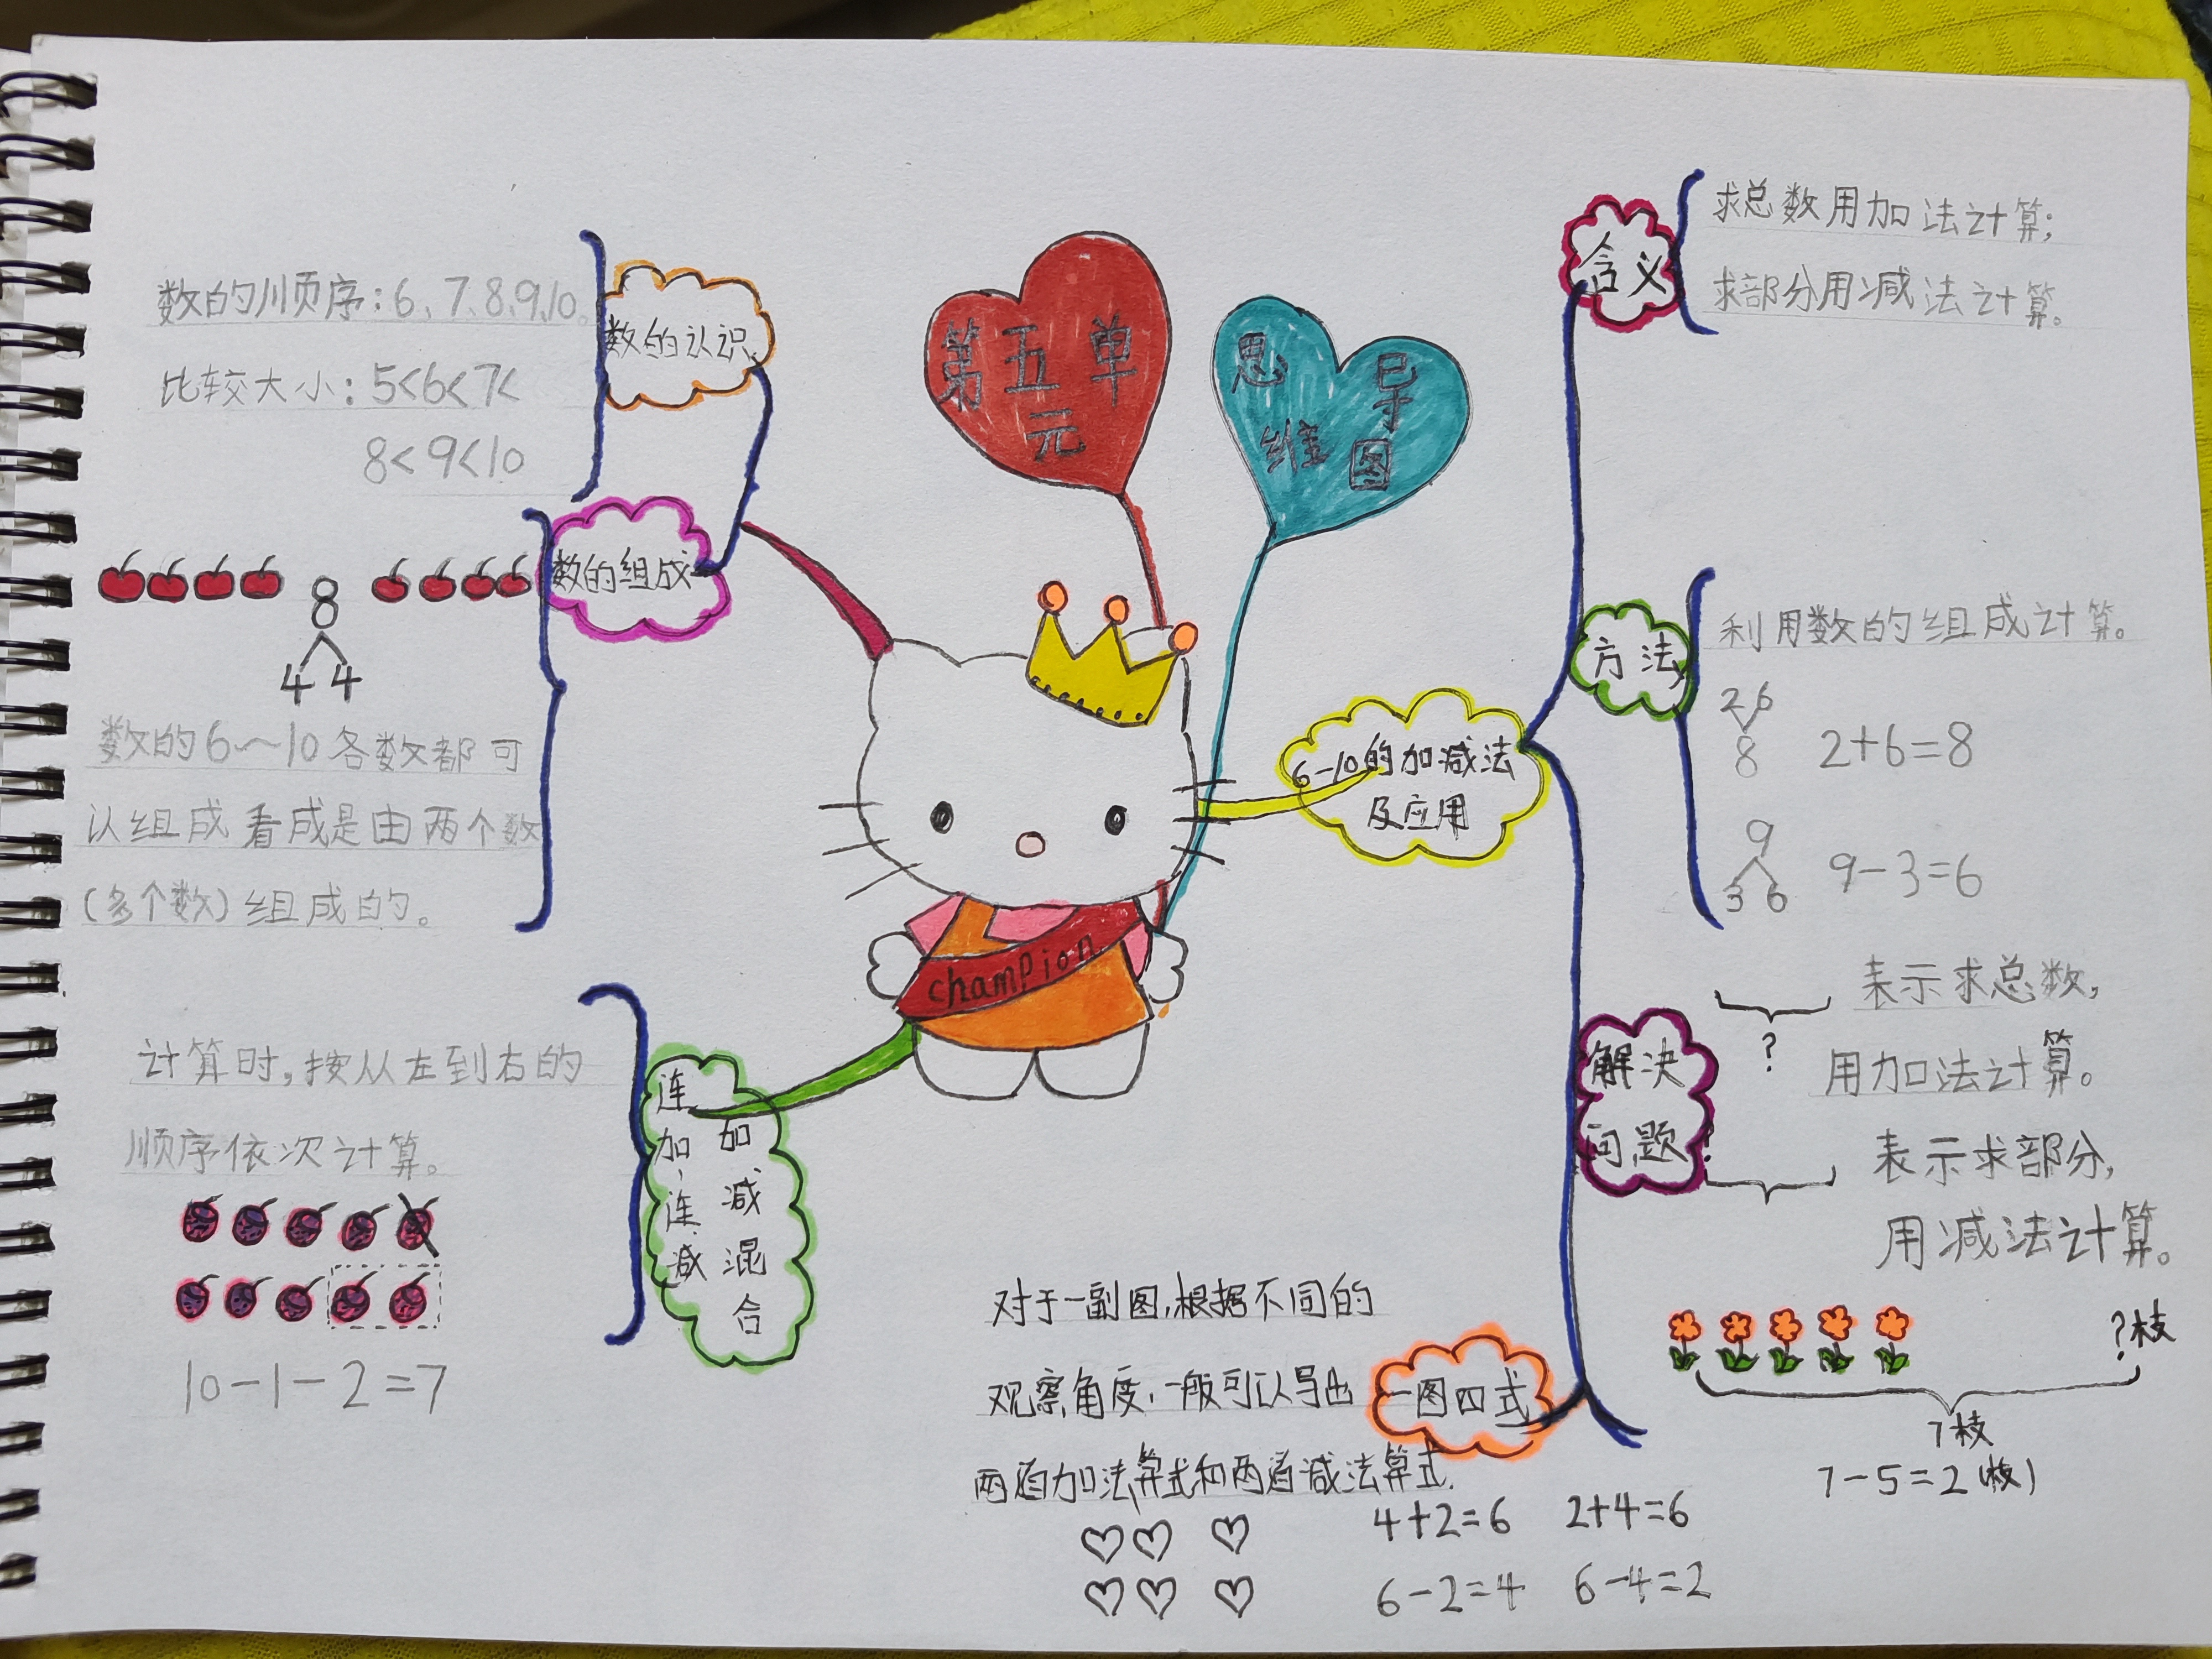 第五单
元
思导
维图
数的认识
数的顺序：6、7、8、9、10。
比较大小：5<6<7<
8<9<10
数的组成
8
4 4
数的6～10各数都可
以组成看成是由两个数
(多个数)组成的。
连加、连减
加减混合
计算时,按从左到右的
顺序依次计算。
10-1-2=7
champion
6-10的加减法
及应用
含义
求总数用加法计算;
求部分用减法计算。
方法
利用数的组成计算。
2 6
8
2+6=8
9
3 6
9-3=6
解决
问题
?
表示求总数,
用加法计算。
表示求部分,
用减法计算。
?枝
7枝
7-5=2(枝)
一图四式
对于一副图,根据不同的
观察角度,一般可以导出
两道加法算式和两道减法算式.
4+2=6 2+4=6
6-2=4 6-4=2